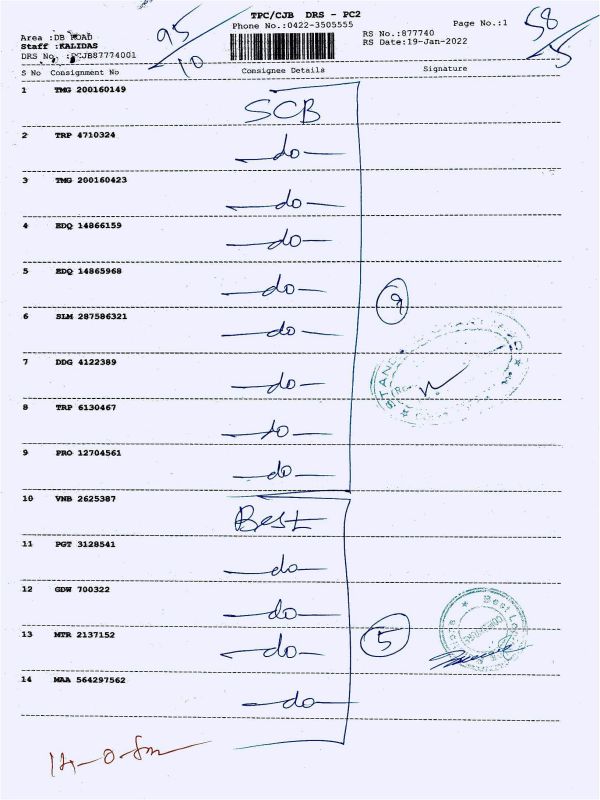 TPC/CJB DRS - PC2
Phone No.:0422-3505555
Page No.:1
95/10
58/5
Area :DB ROAD
Staff :KALIDAS
DRS No. :PCJB87774001
RS No.:877740
RS Date:19-Jan-2022
S No Consignment No Consignee Details Signature
1 TMG 200160149 SCB
2 TRP 4710324 -do-
3 TMG 200160423 -do-
4 EDQ 14866159 -do-
5 EDQ 14865968 -do-
6 SLM 287586321 -do-
9
7 DDG 4122389 -do-
8 TRP 6130467 -do-
9 PRO 12704561 -do-
10 VNB 2625387 Best
11 PGT 3128541 -do-
12 GDW 700322 -do-
13 MTR 2137152 -do-
5
Best
14 MAA 564297562 -do-